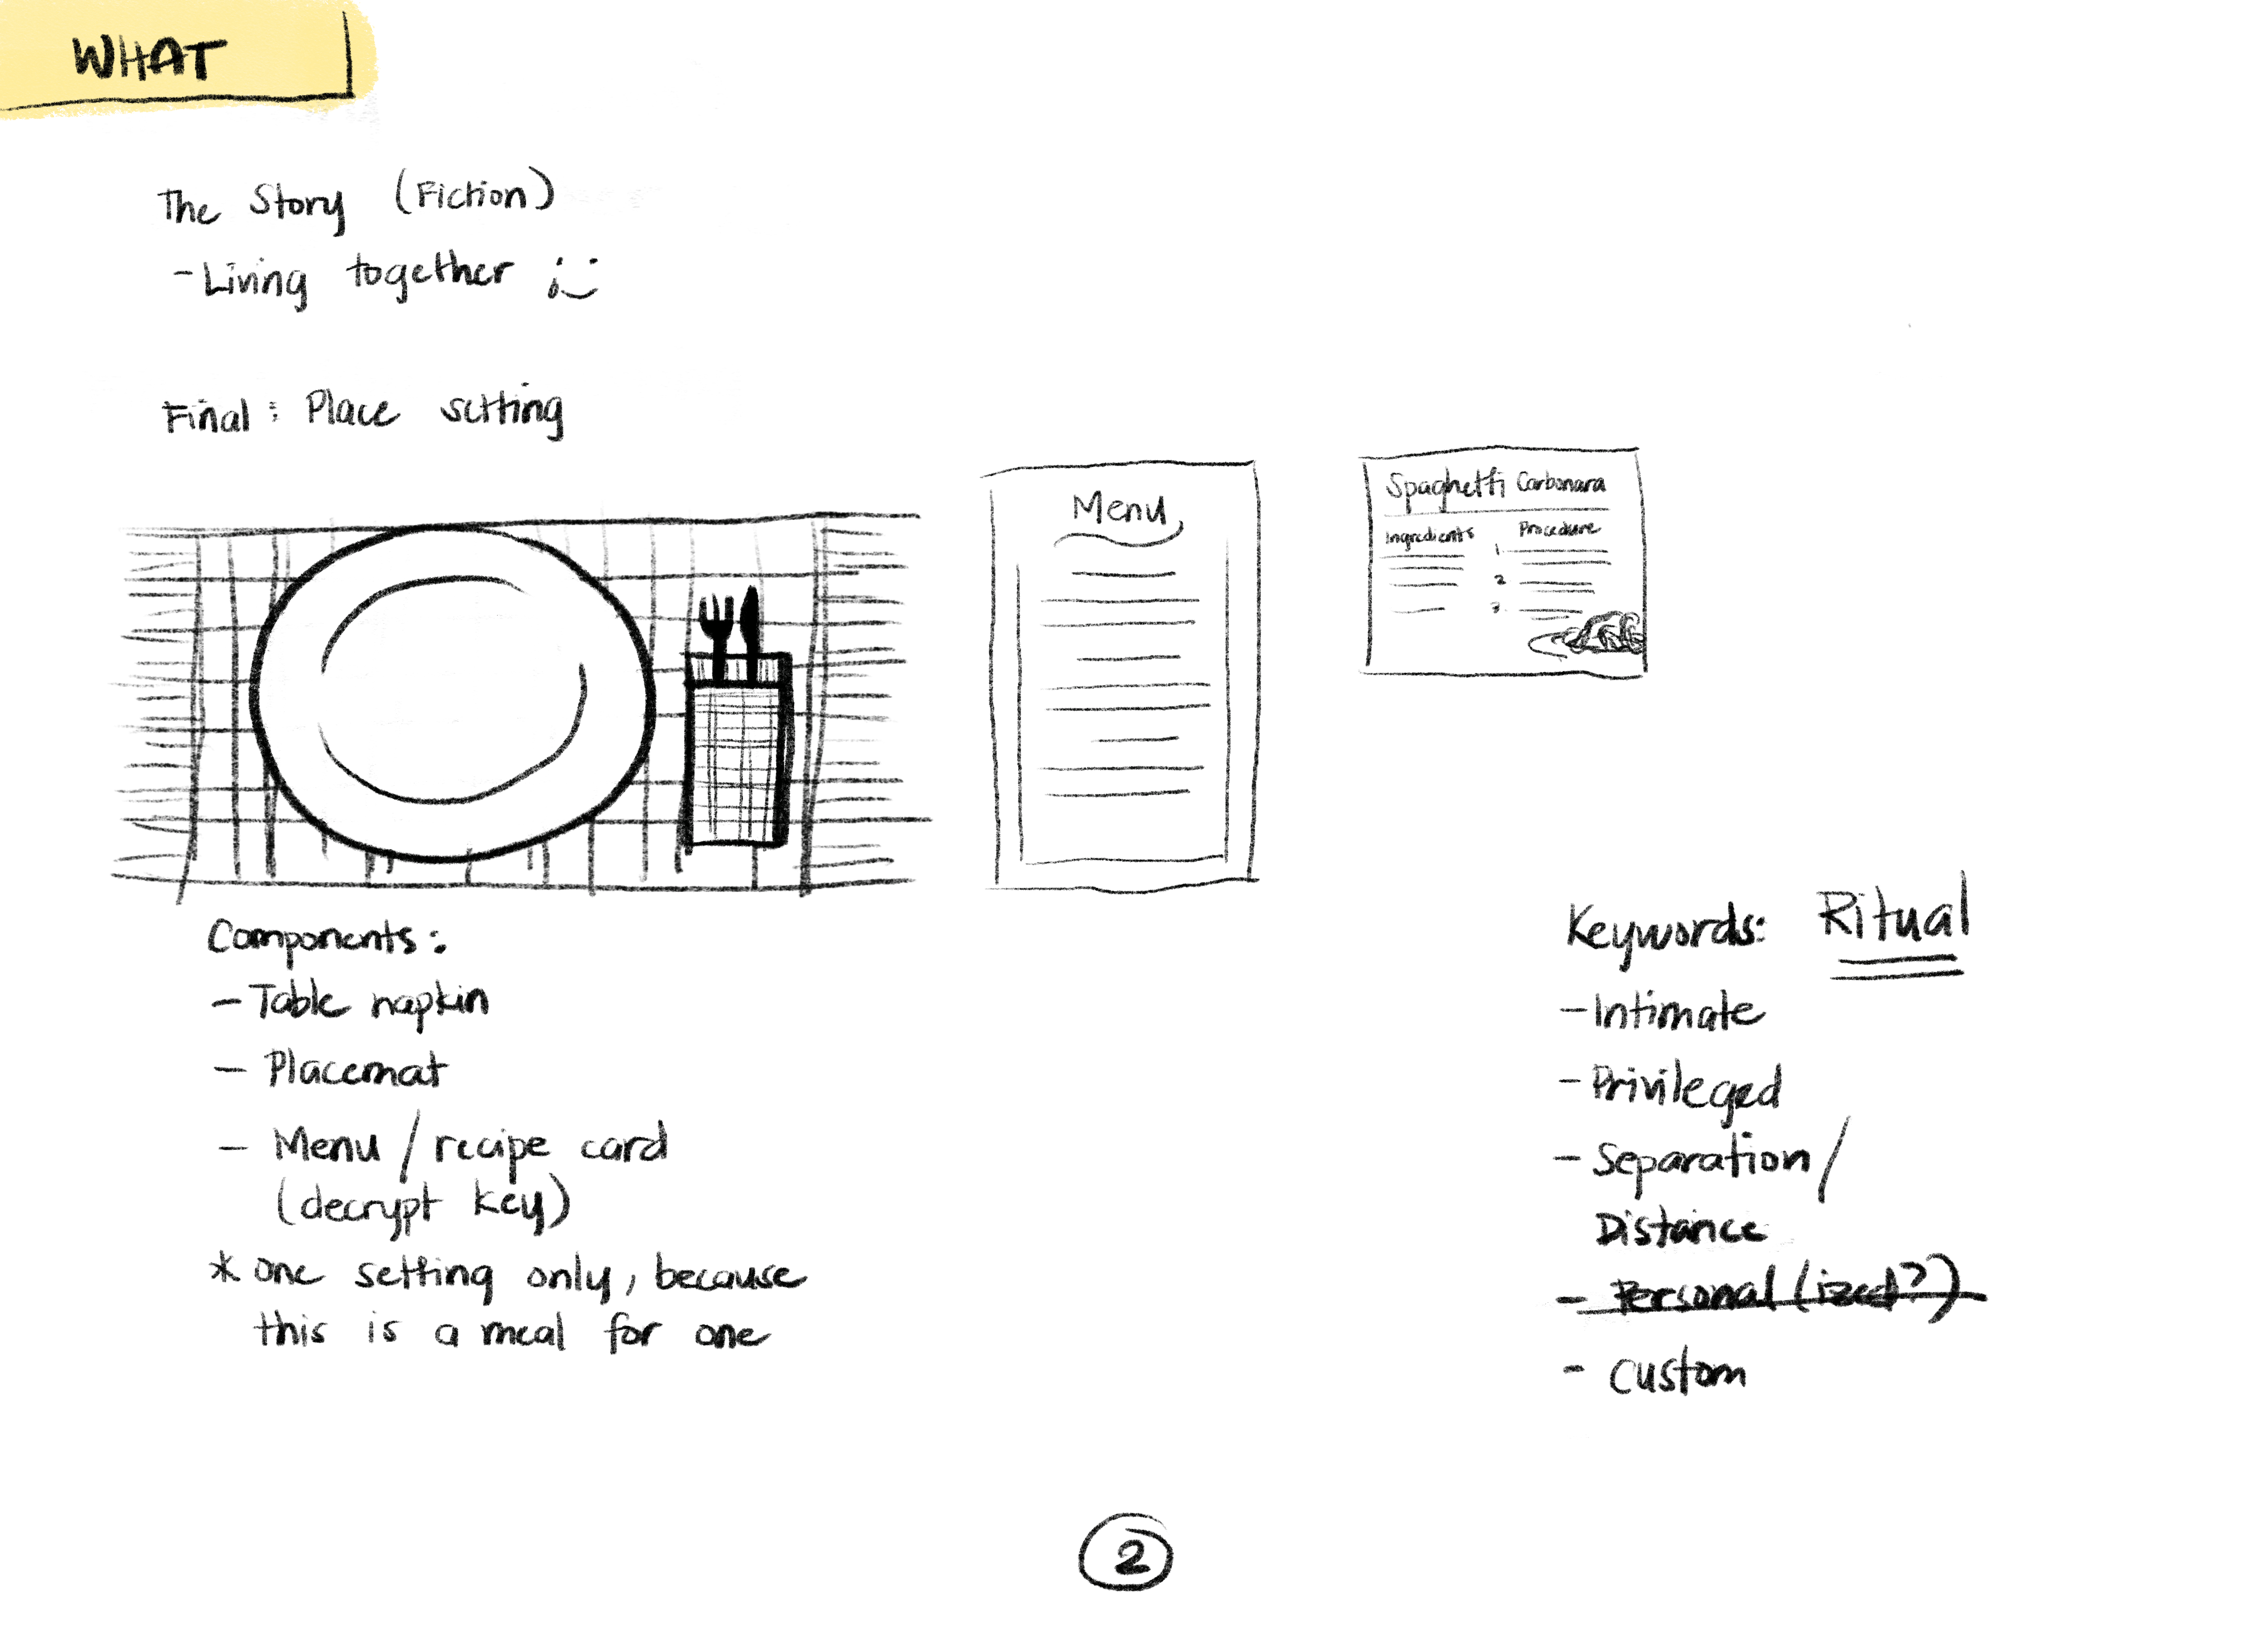 WHAT
The Story (Fiction)
- Living together
Final: Place setting
Menu
Spaghetti Carbonara
Ingredients
Procedure
1.
2
3.
Components:
- Table napkin
- Placemat
- Menu / recipe card
(decrypt key)
* one setting only, because
this is a meal for one
Keywords: Ritual
- Intimate
- Privileged
- Separation /
Distance
- Personal (ized?)
- Custom
2